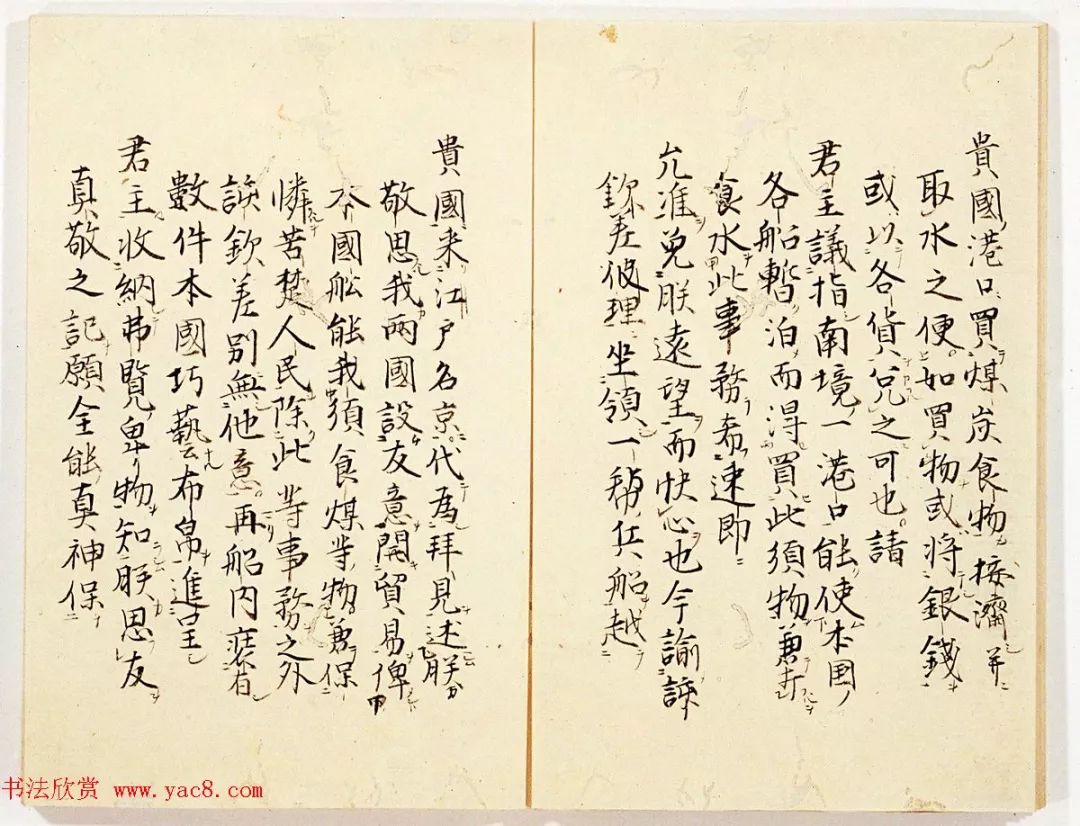 貴國港口買煤炭食物接濟并
取水之便。如買物或將銀錢
或以各貨兌之可也。請
君主議指南境一港口能使本国
各船暫泊而得買此須物兼
食水此事務希速即
允准免朕遠望而快心也今諭該
欽差彼理坐領一兵船越
貴國来江戸名京。代為拜見述朕
敬思我兩國設友意開貿易俾
本國舩能我須食煤等物兼保
憐苦楚人民除此等事務之外
該欽差別無他意。再船内裝有
數件本國巧藝布帛進呈
君主收納弗覽卑物知朕思友
真敬之記願全能真神保
书法欣赏 www.yac8.com